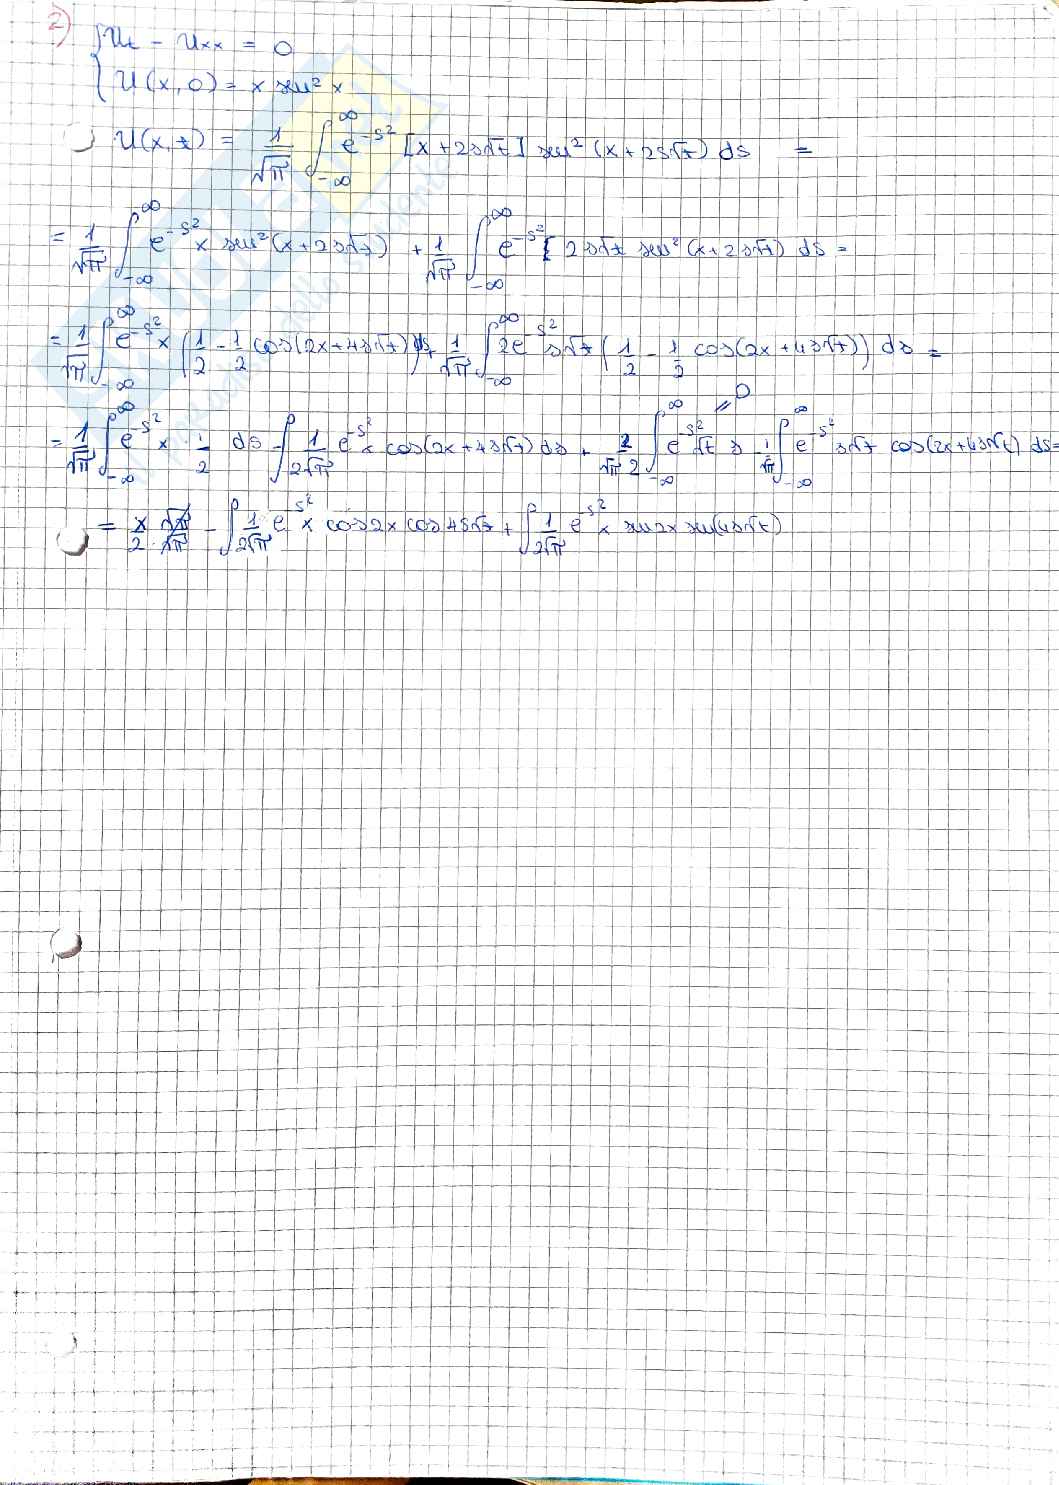 2)
{ Ut - Uxx = 0
{ U(x,0) = x sen² x
U(x,t) = 1/√π ∫_{-∞}^{∞} e^{-s²} [x + 2s√t] sen² (x + 2s√t) ds =
= 1/√π ∫_{-∞}^{∞} e^{-s²} x sen² (x + 2s√t) + 1/√π ∫_{-∞}^{∞} e^{-s²} [ 2s√t sen² (x + 2s√t) ds =
= 1/√π ∫_{-∞}^{∞} e^{-s²} x (1/2 - 1/2 cos(2x + 4s√t)) ds + 1/√π ∫_{-∞}^{∞} 2e^{-s²} s√t (1/2 - 1/2 cos(2x + 4s√t)) ds =
= 1/√π ∫_{-∞}^{∞} e^{-s²} x · 1/2 ds - ∫ 1/2√π e^{-s²} x cos(2x + 4s√t) ds + 2/√π 2 ∫_{-∞}^{∞} e^{-s²} √t s - 1/√π ∫_{-∞}^{∞} e^{-s²} s√t cos(2x + 4s√t) ds =
= 0
= x/2 · √π/√π - ∫ 1/2√π e^{-s²} x cos 2x cos 4s√t + ∫ 1/2√π e^{-s²} x sen 2x sen(4s√t)